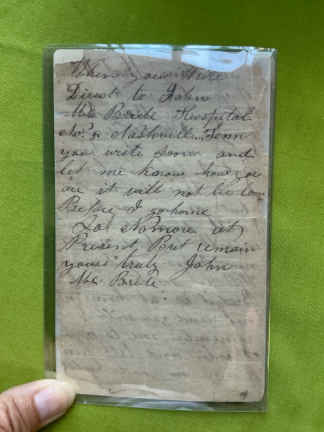 When you Write
Direct to John
Mc Bride Hospital
No 2 Nashvill Tenn
you write soon and
let me know how you
air it will not be long
Before I go home
No more at
Present But remain
yours truly John
Mc Bride